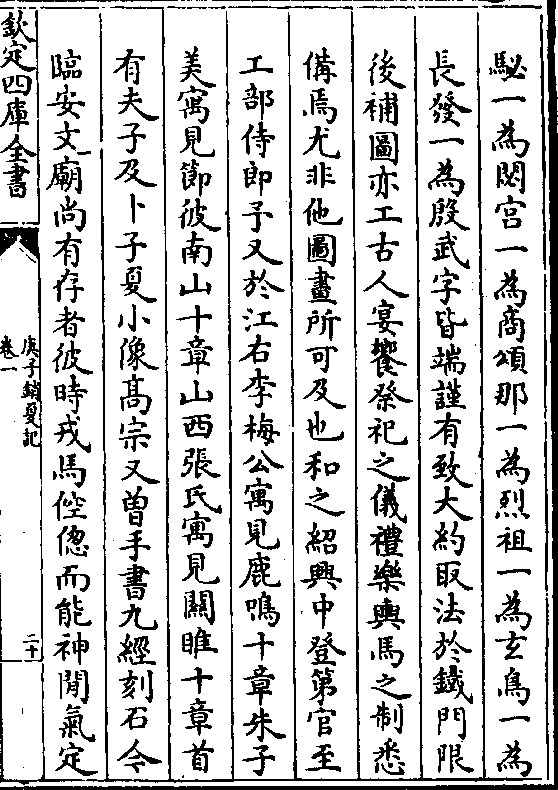 駜一為閟宫一為商頌那一為烈祖一為玄鳥一為
長發一為殷武字皆端謹有致大約取法於鐵門限
後補圖亦工古人宴饗祭祀之儀禮樂輿馬之制悉
備焉尤非他圖畫所可及也和之紹興中登第官至
工部侍郎予又於江右李梅公寓見鹿鳴十章朱子
美寓見節彼南山十章山西張氏寓見關雎十章首
有夫子及卜子夏小像髙宗又曽手書九經刻石今
臨安文廟尚有存者彼時戎馬倥偬而能神閒氣定
欽定四庫全書
庚子銷夏記
卷一
二十